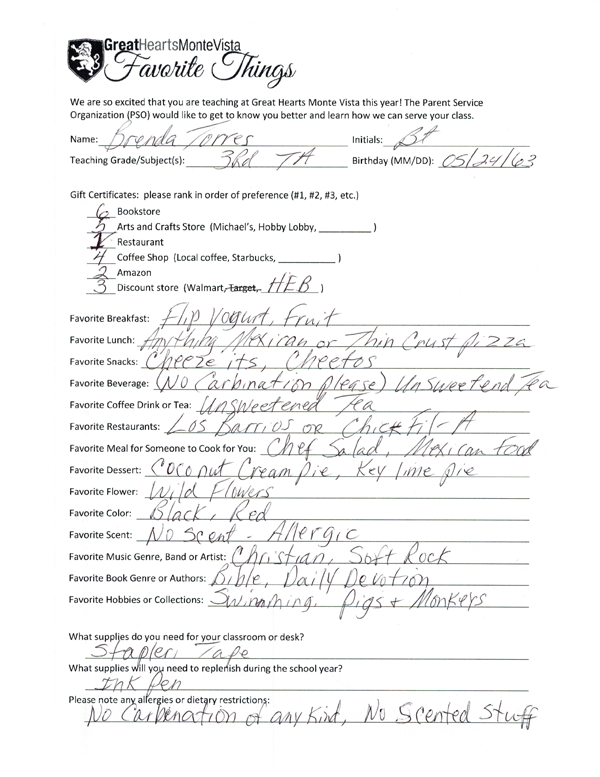 GreatHeartsMonteVista
Favorite Things
We are so excited that you are teaching at Great Hearts Monte Vista this year! The Parent Service
Organization (PSO) would like to get to know you better and learn how we can serve your class.
Name: Brenda Torres Initials: Bt
Teaching Grade/Subject(s): 3rd TA Birthday (MM/DD): 05/24/63
Gift Certificates: please rank in order of preference (#1, #2, #3, etc.)
6 Bookstore
5 Arts and Crafts Store (Michael's, Hobby Lobby, __________ )
1 Restaurant
4 Coffee Shop (Local coffee, Starbucks, ___________ )
2 Amazon
3 Discount store (Walmart, Target, HEB )
Favorite Breakfast: Flip Yogurt, Fruit
Favorite Lunch: Anything Mexican or Thin Crust pizza
Favorite Snacks: Cheeze its, Cheetos
Favorite Beverage: (No Carbination please) Unsweetend Tea
Favorite Coffee Drink or Tea: Unsweetened Tea
Favorite Restaurants: Los Barrios or Chick Fil-A
Favorite Meal for Someone to Cook for You: Chef Salad, Mexican Food
Favorite Dessert: Coconut Cream pie, Key lime pie
Favorite Flower: Wild Flowers
Favorite Color: Black, Red
Favorite Scent: No Scent - Allergic
Favorite Music Genre, Band or Artist: Christian, Soft Rock
Favorite Book Genre or Authors: Bible, Daily Devotion
Favorite Hobbies or Collections: Swimming, pigs + Monkeys
What supplies do you need for your classroom or desk?
Stapler, Tape
What supplies will you need to replenish during the school year?
Ink pen
Please note any allergies or dietary restrictions:
No Carbenation of any Kind, No Scented Stuff